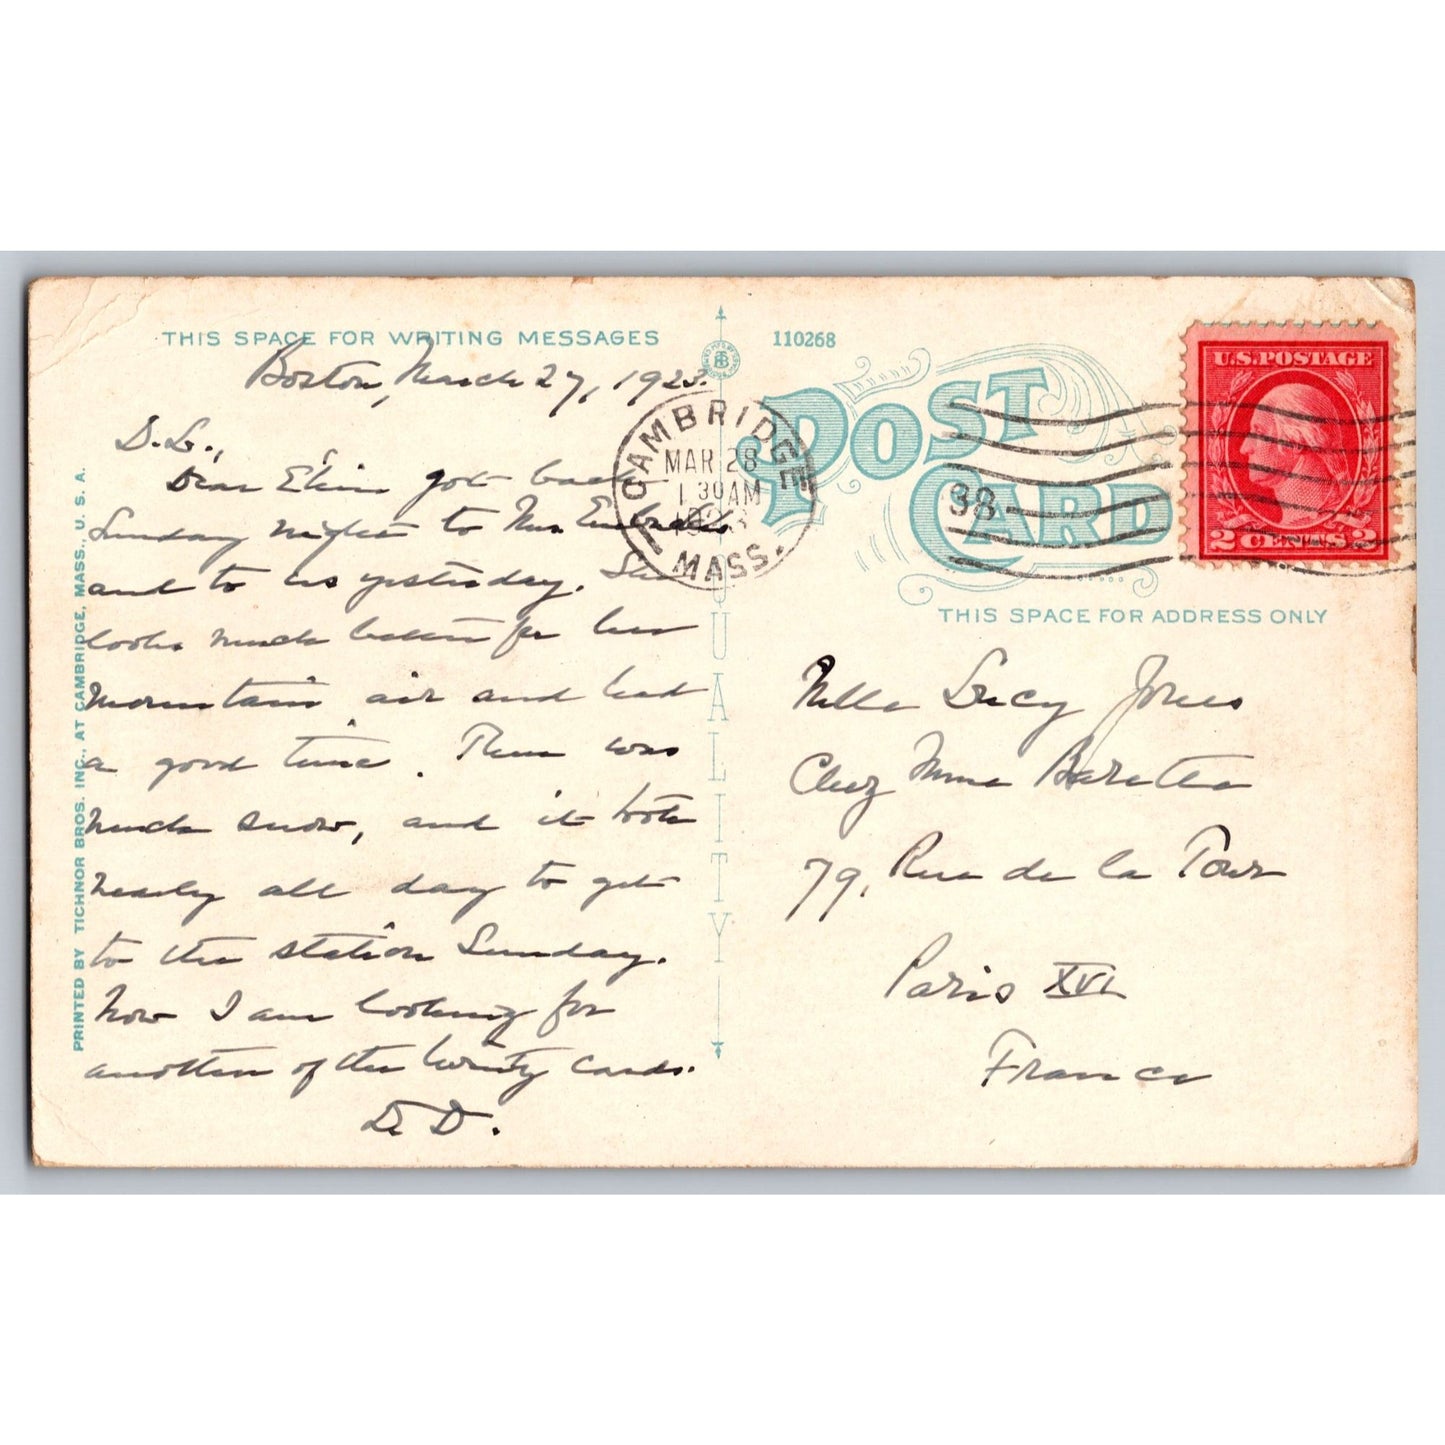 THIS SPACE FOR WRITING MESSAGES
110268
POST CARD
Boston, March 27, 1923.
D. L.,
Dear Elsie got back
Sunday night to Mrs
and to us yesterday. She
looks much better for her
mountain air and had
a good time. There was
much snow, and it took
nearly all day to get
to the station Sunday.
Now I am looking for
another of the twenty cards.
D. D.
PRINTED BY TICHNOR BROS. INC., AT CAMBRIDGE, MASS., U. S. A.
QUALITY
CAMBRIDGE
MAR 28
1 30 AM
1923
MASS.
U.S. POSTAGE
2 CENTS 2
THIS SPACE FOR ADDRESS ONLY
Mlle Lucy Jones
Chez Mme Baretta
79, Rue de la Tour
Paris XVI
France